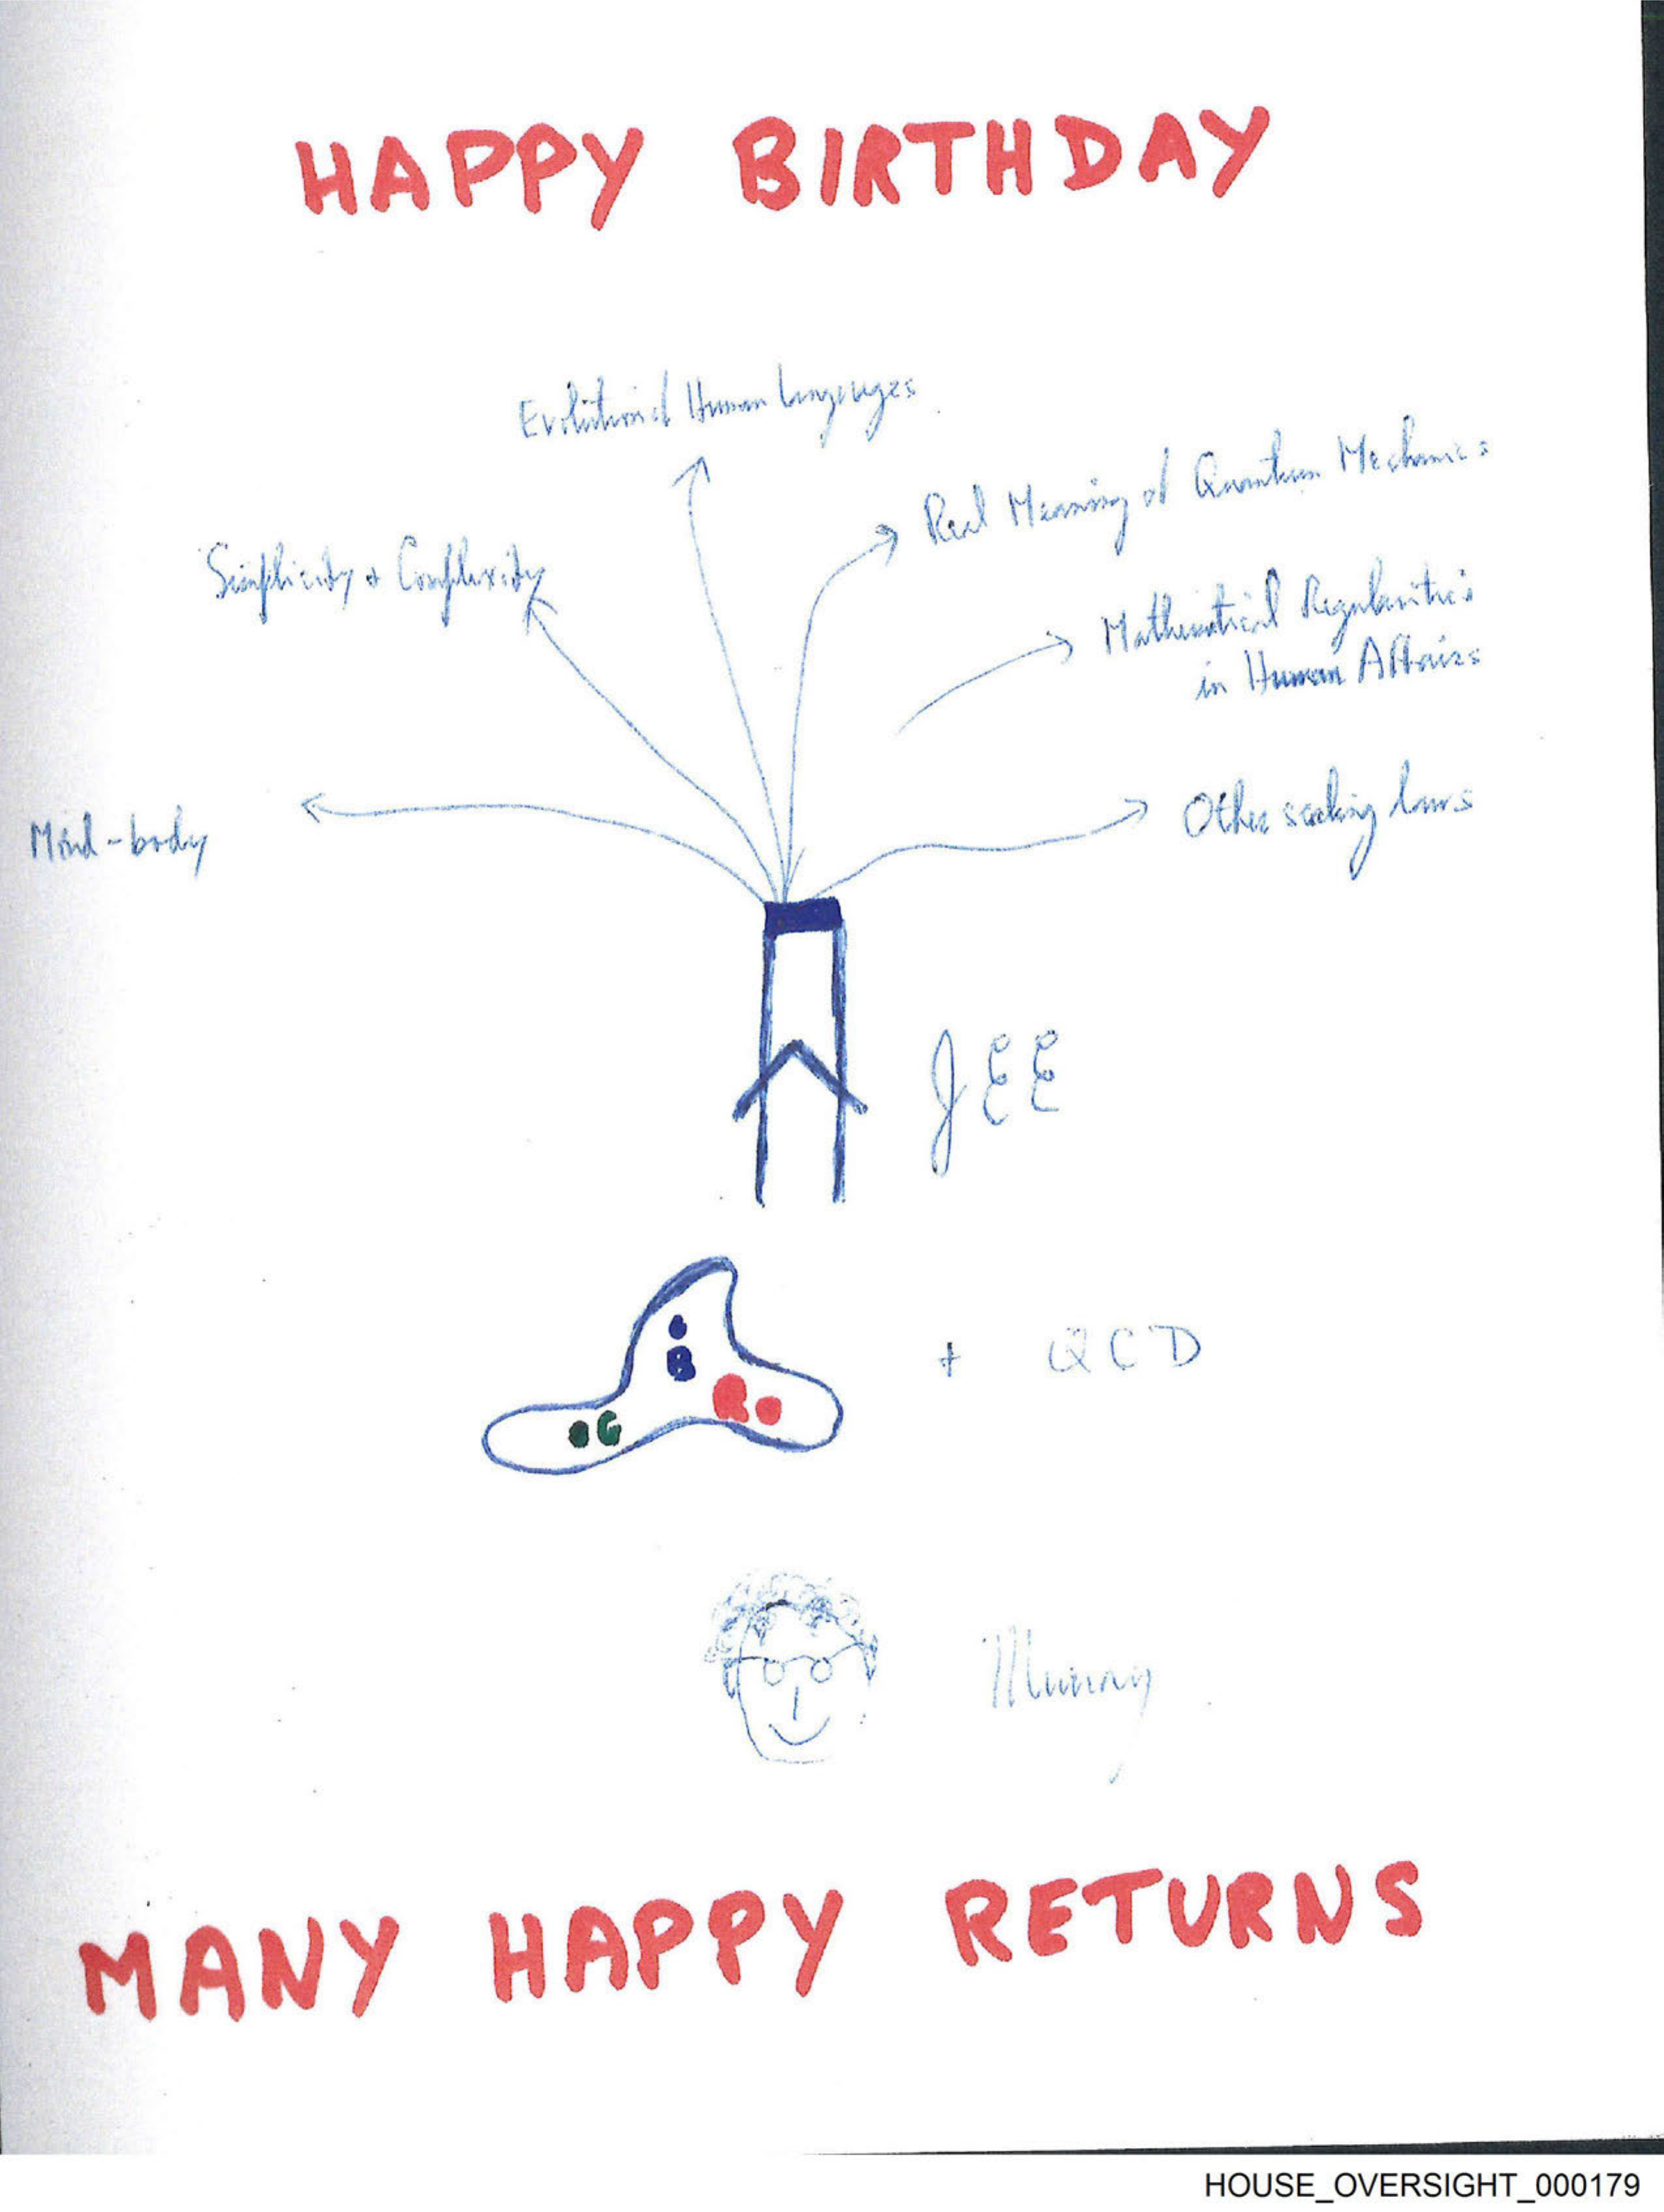 HAPPY BIRTHDAY
Evolution of Human Languages
Real Meaning of Quantum Mechanics
Simplicity + Complexity
Mathematical Regularities
in Human Affairs
Mind-body
Other scaling laws
JEE
B
R
G
+ QCD
Murray
MANY HAPPY RETURNS
HOUSE_OVERSIGHT_000179